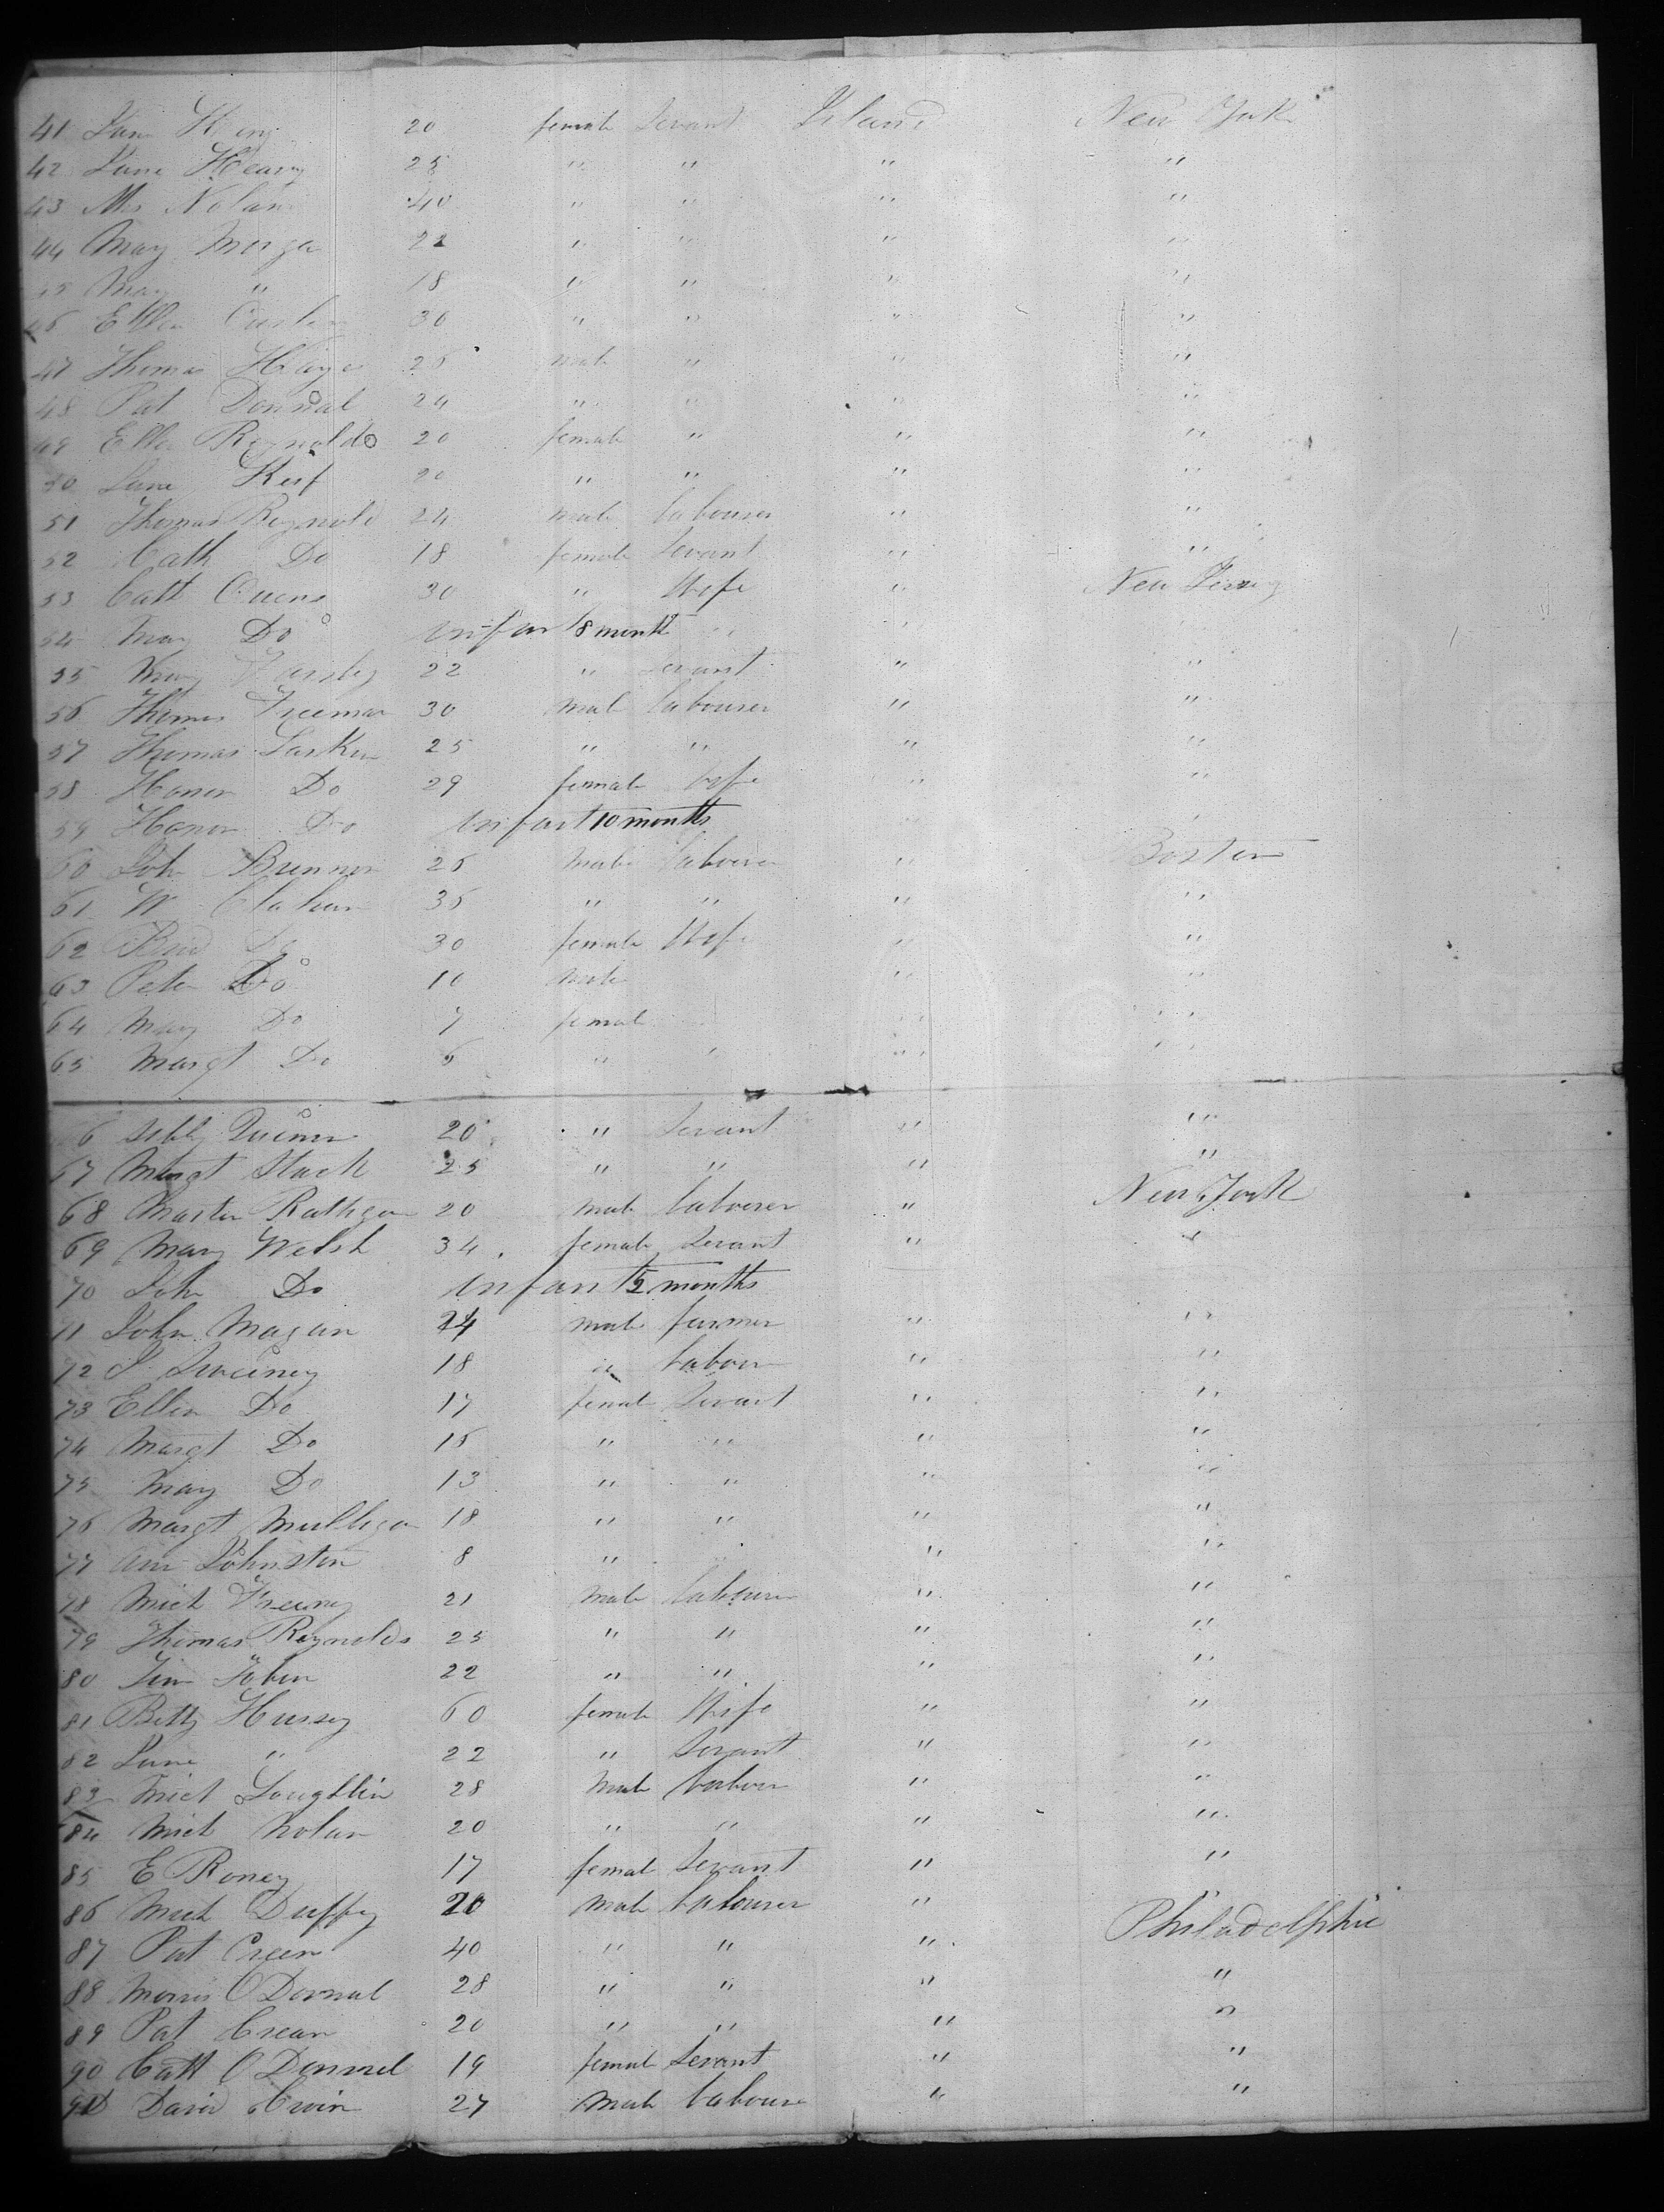 41 Jane 20 female Servant Ireland New York
42 Jane Heavy 25 " " " "
43 Mrs Nolan 40 " " " "
44 Mary Morga 22 " " " "
45 Mary " 18 " " " "
46 Ellen 30 " " " "
47 Thomas Hayes 25 male " " "
48 Pat Donnal 24 " " " "
49 Ellen Reynolds 20 female " " "
50 Jane Keif 20 " " " "
51 Thomas Reynold 24 male labourer " "
52 Cath Do 18 female Servant " "
53 Catt Owens 30 " Wife " New Jersey
54 Mary Do infant 8 month " "
55 Mary 22 " Servant " "
56 Thomas Freeman 30 male labourer " "
57 Thomas Larkin 25 " " " "
58 Honor Do 29 female Wife " "
59 Honor Do infant 10 months "
60 John Brennon 25 male labourer " Boston
61 W 35 " " " "
62 Do 30 female Wife " "
63 Peter Do 10 male " "
64 Mary Do 7 female " "
65 Margt Do 5 " " " "
6 20 " Servant " "
67 Margt Stack 25 " " " "
68 Martin Rathigan 20 male labourer " New York
69 Mary Welsh 34 female Servant " "
70 John Do infant 2 months
71 John Magan 24 male farmer " "
72 J Sweeney 18 " labour " "
73 Ellen Do 17 female Servant " "
74 Margt Do 15 " " " "
75 Mary Do 13 " " " "
76 Margt Mulligan 18 " " " "
77 Ann Johnston 8 " " " "
78 Mich Freeney 21 male labourer " "
79 Thomas Reynolds 25 " " " "
80 Tim Tobin 22 " " " "
81 Betty Hussey 60 female Wife " "
82 Jane " 22 " Servant " "
83 Mich Loughlin 28 male labour " "
84 Mich Nolan 20 " " " "
85 E Roney 17 female Servant " "
86 Mich Duffy 20 male labourer " "
87 Pat Creen 40 " " " Philadelphia
88 Morris O Donnal 28 " " " "
89 Pat Crean 20 " " " "
90 Catt O Donnel 19 female Servant " "
91 David 27 male labourer " "